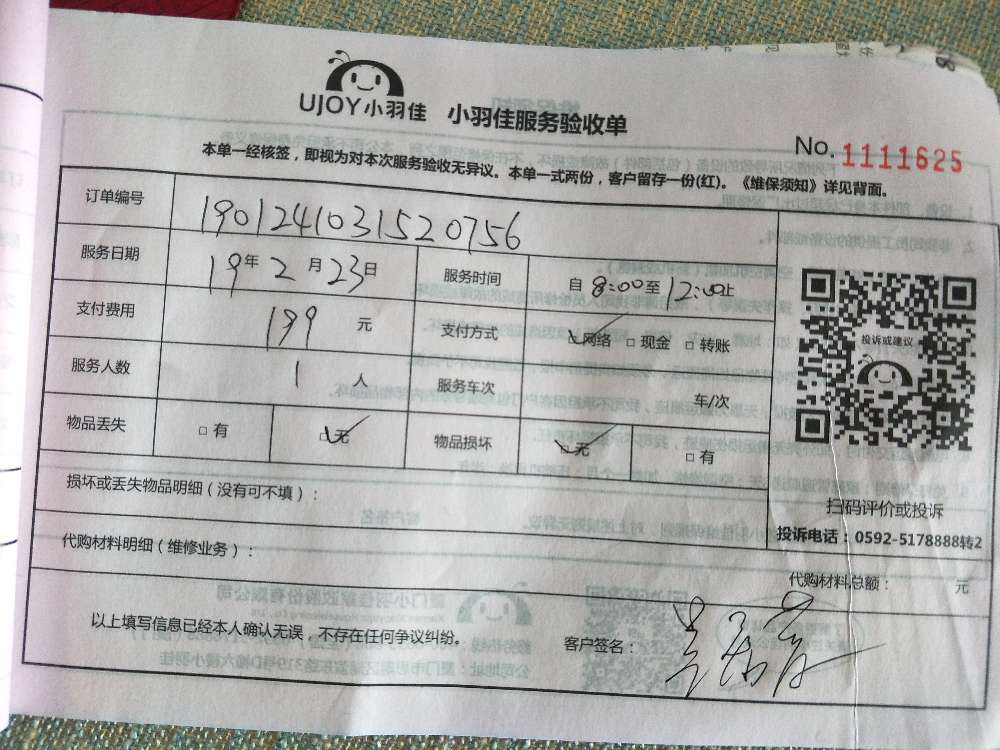 UJOY小羽佳 小羽佳服务验收单
No. 1111625
本单一经核签，即视为对本次服务验收无异议。本单一式两份，客户留存一份(红)。《维保须知》详见背面。
订单编号 1901241031520756
服务日期 19年2月23日 服务时间 自8:00至12:00止
支付费用 199元 支付方式 ☑网络 □现金 □转账
服务人数 1人 服务车次 车/次
物品丢失 □有 ☑无 物品损坏 ☑无 □有
投诉或建议
扫码评价或投诉
投诉电话：0592-5178888转2
损坏或丢失物品明细（没有可不填）：
代购材料明细（维修业务）：
代购材料总额： 元
以上填写信息已经本人确认无误，不存在任何争议纠纷。
客户签名：